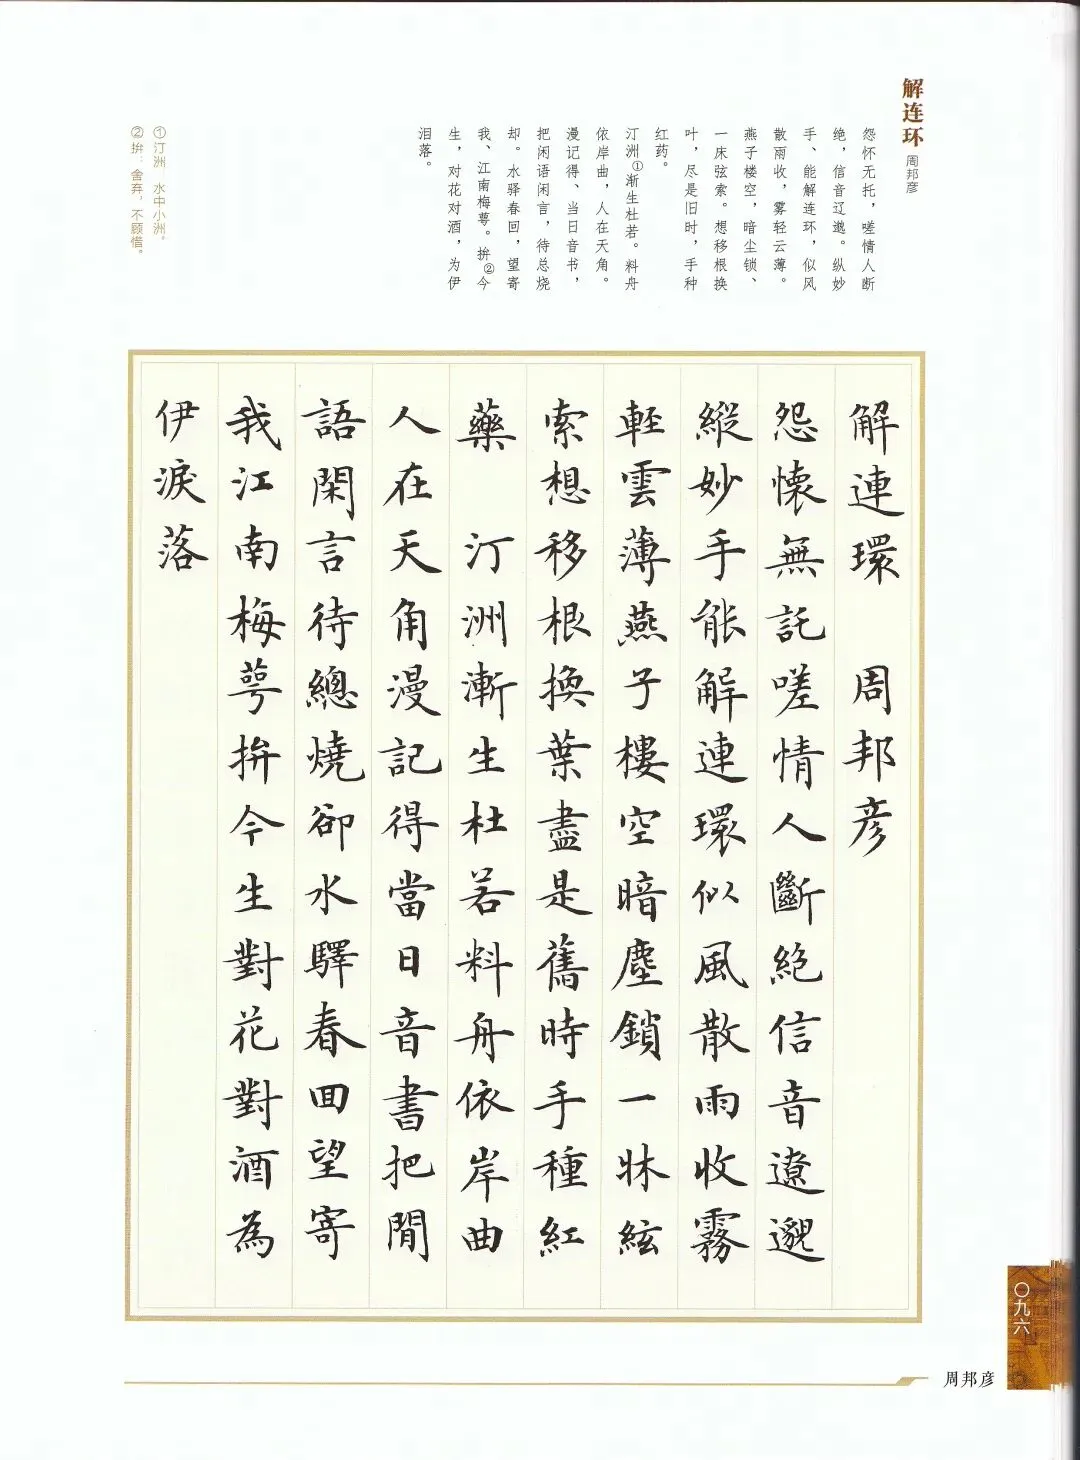 解连环
周邦彦
怨怀无托，嗟情人断
绝，信音辽邈。纵妙
手、能解连环，似风
散雨收，雾轻云薄。
燕子楼空，暗尘锁、
一床弦索。想移根换
叶，尽是旧时，手种
红药。
汀洲①渐生杜若。料舟
依岸曲，人在天角。
漫记得、当日音书，
把闲语闲言，待总烧
却。水驿春回，望寄
我、江南梅萼。拚②今
生，对花对酒，为伊
泪落。
①汀洲：水中小洲。
②拚：舍弃，不顾惜。
解連環 周邦彦
怨懷無託嗟情人斷絶信音遼邈
縱妙手能解連環似風散雨收霧
輕雲薄燕子樓空暗塵鎖一牀絃
索想移根換葉盡是舊時手種紅
藥 汀洲漸生杜若料舟依岸曲
人在天角漫記得當日音書把閒
語閑言待總燒卻水驛春回望寄
我江南梅萼拚今生對花對酒為
伊淚落
〇九六
周邦彦